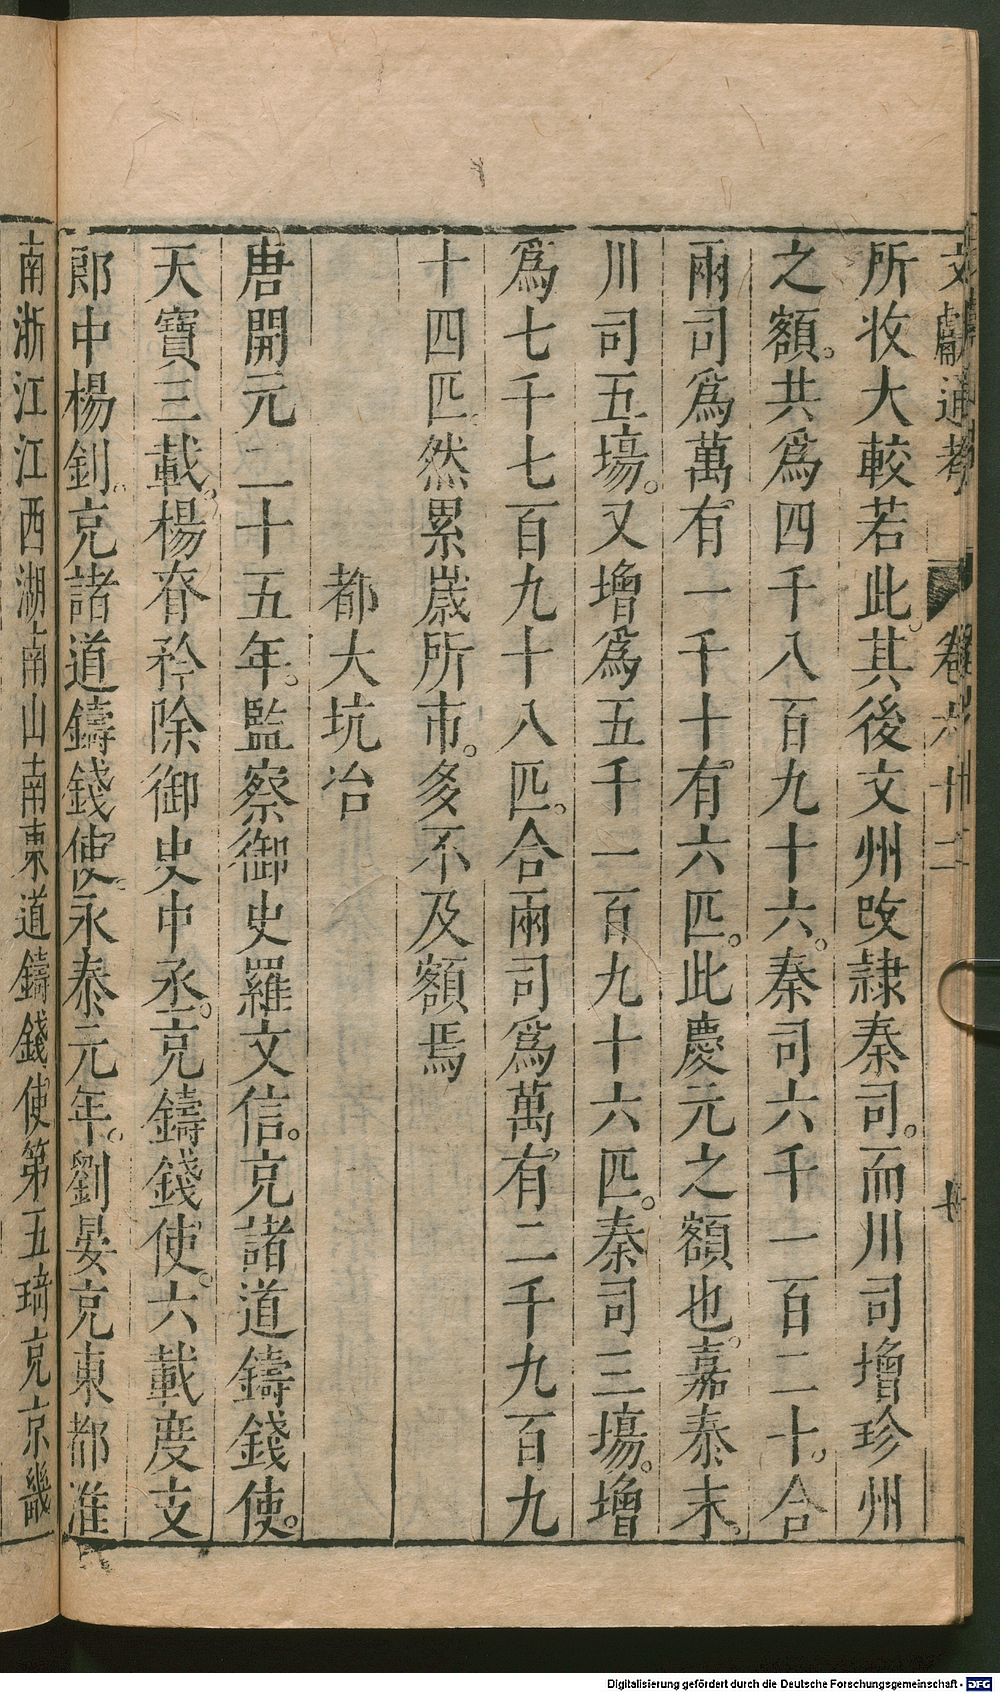 文獻通考 卷六十二
所收大較若此。其後文州改隷秦司。而川司增珍州
之額。共爲四千八百九十六。秦司六千一百二十。合
兩司爲萬有一千十有六匹。此慶元之額也。嘉泰末。
川司五塲。又增爲五千一百九十六匹。秦司三塲。增
爲七千七百九十八匹。合兩司爲萬有二千九百九
十四匹。然累歲所市。多不及額焉
都大坑冶
唐開元二十五年。監察御史羅文信。充諸道鑄錢使。
天寶三載。楊脊矜除御史中丞。充鑄錢使。六載度支
郎中楊釗。充諸道鑄錢使。永泰元年。劉晏充東都淮
南浙江江西湖南山南東道鑄錢使第五琦充京畿
Digitalisierung gefördert durch die Deutsche Forschungsgemeinschaft - DFG